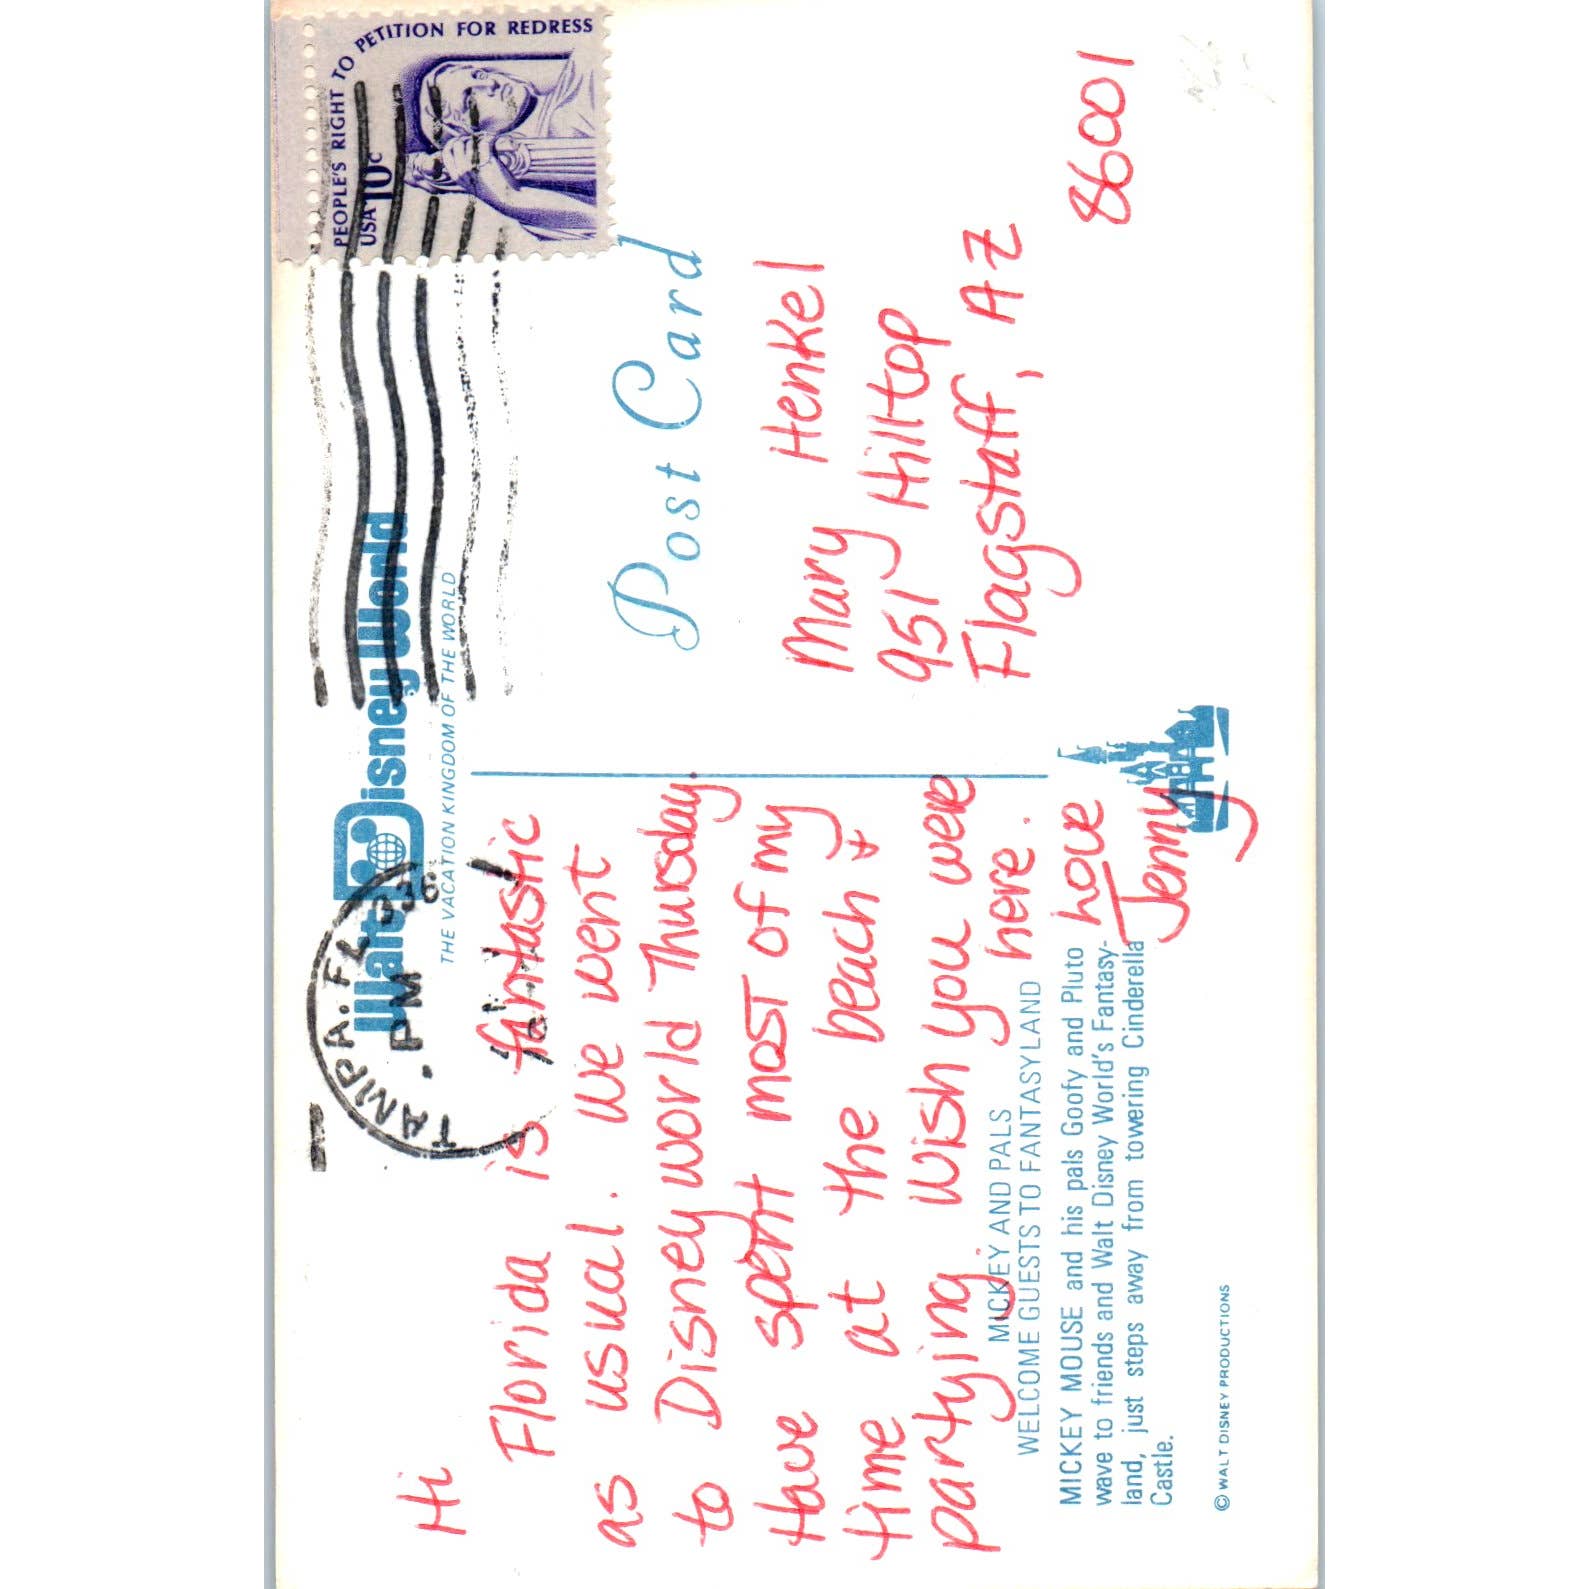 Walt Disney World
THE VACATION KINGDOM OF THE WORLD
TAMPA. FL
PM
PEOPLE'S RIGHT TO PETITION FOR REDRESS
USA 10c
Post Card
Hi
Florida is fantastic
as usual. We went
to Disney world Thursday.
Have spent most of my
time at the beach &
partying. Wish you were
here.
love
Jenny
Mary Henkel
951 Hilltop
Flagstaff, AZ
86001
MICKEY AND PALS
WELCOME GUESTS TO FANTASYLAND
MICKEY MOUSE and his pals Goofy and Pluto
wave to friends and Walt Disney World's Fantasy-
land, just steps away from towering Cinderella
Castle.
© WALT DISNEY PRODUCTIONS